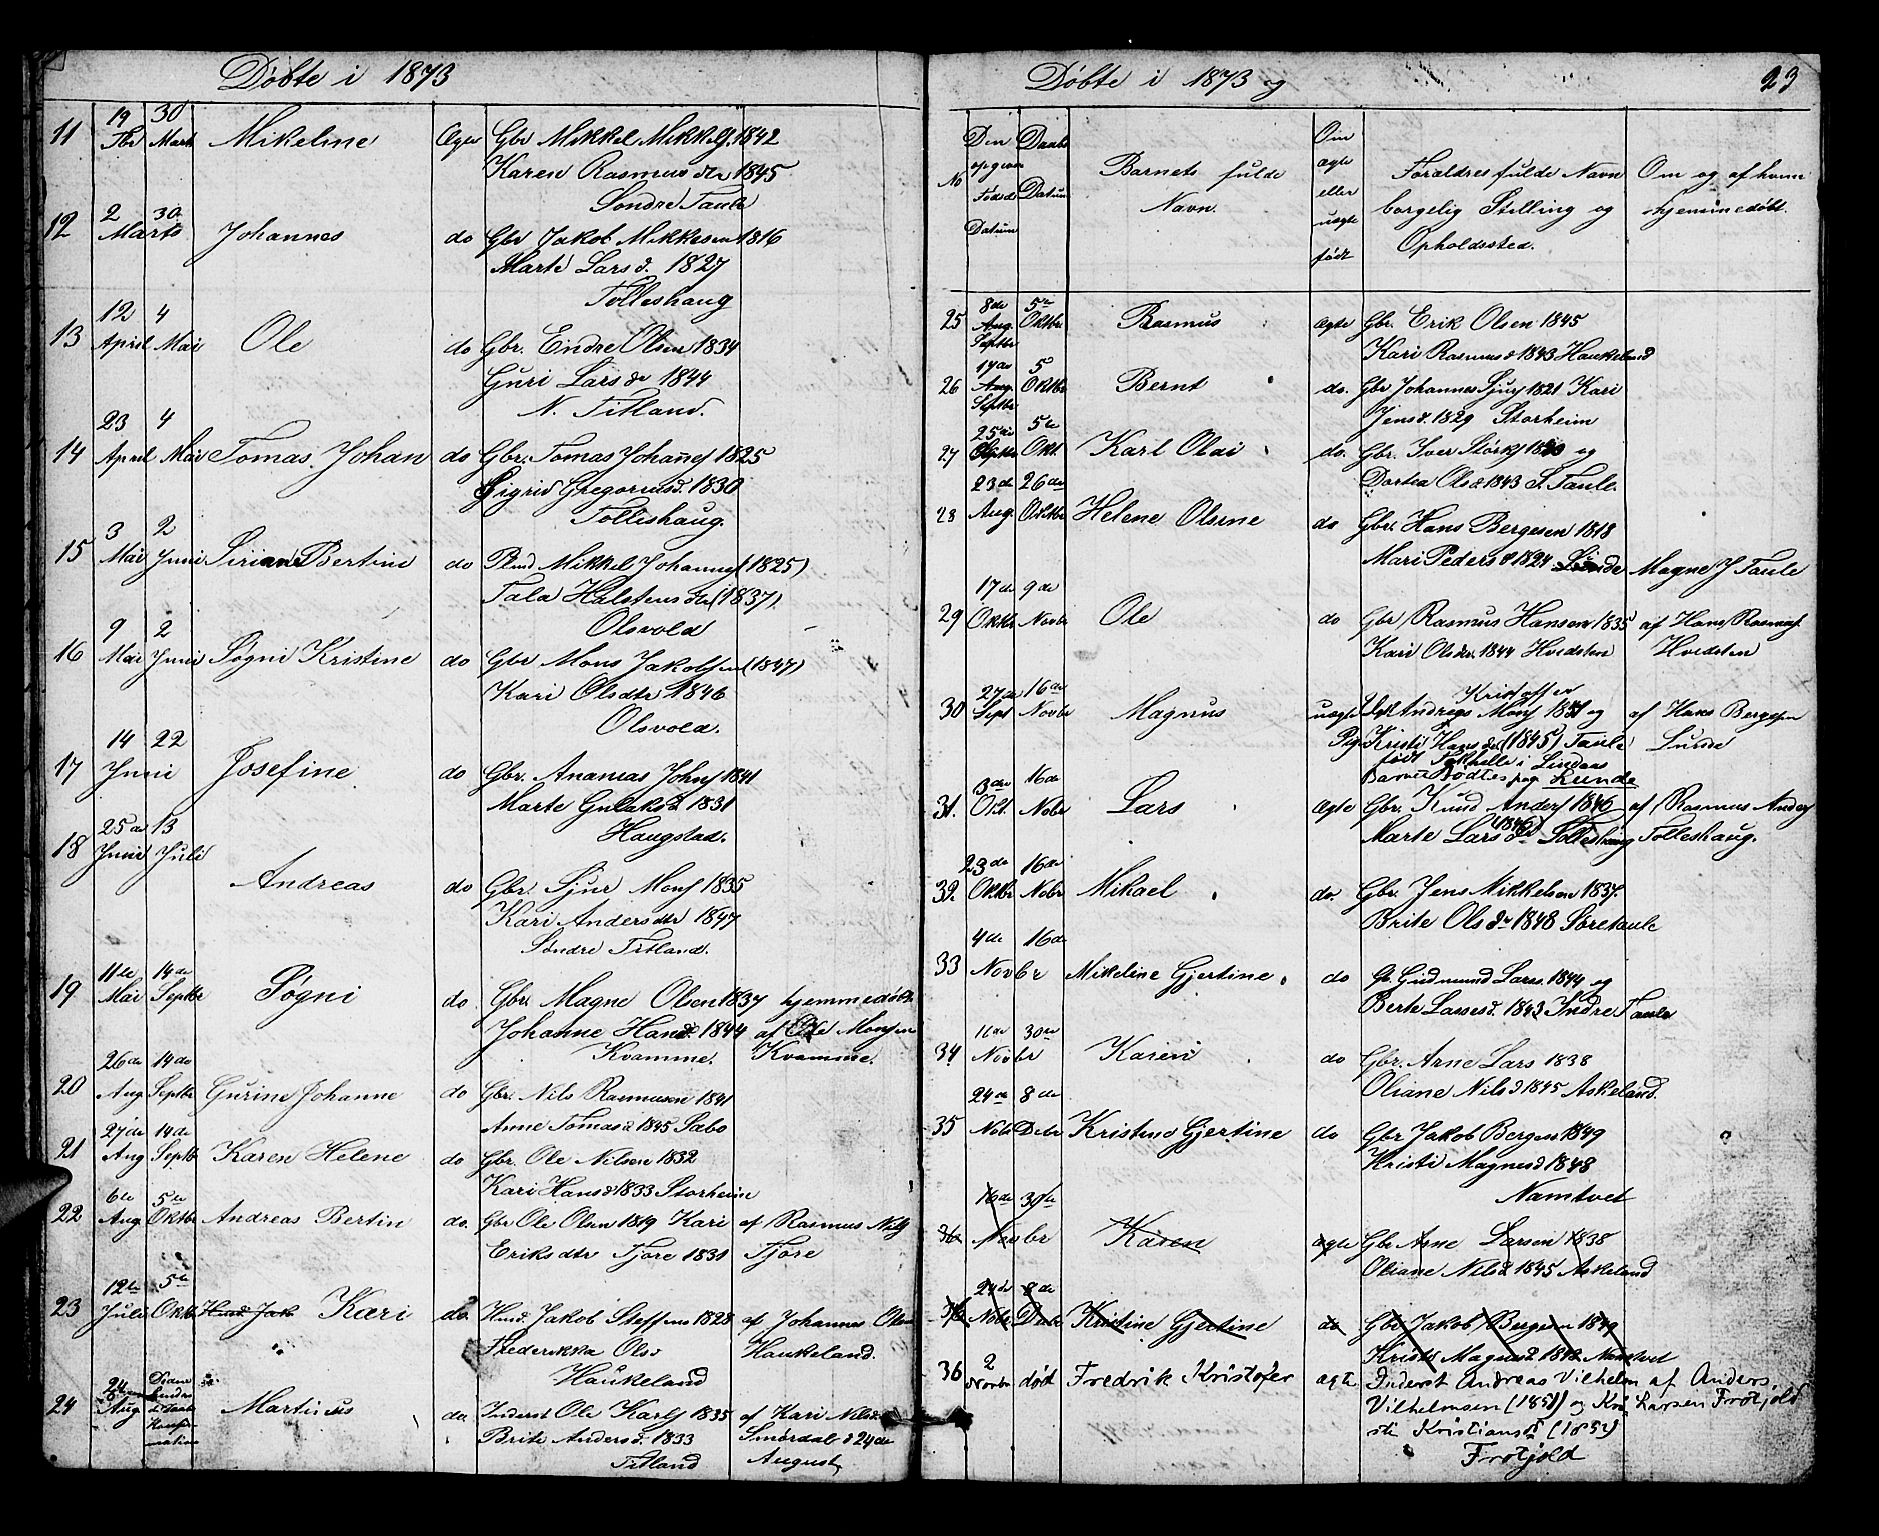 Døbte i 1873
11 19 Fbr 30 Marts Mikeline Ægte Gbr Mikkel Mikkels. 1842
Karen Rasmusdtr 1845
Søndre Taule
12 2 Marts 30 Johannes do Gbr Jakob Mikkelsen 1816
Marte Larsd. 1827
Tolleshaug
13 12 April 4 Mai Ole do Gbr. Endre Olsen 1834
Guri Larsdr 1844
N. Titland.
14 23 April 4 Mai Tomas Johan do Gbr. Tomas Johannes 1825
Sigrid Gregoriusd. 1830
Tolleshaug.
15 3 Mai 2 Juni Bertine do Mikkel Johannes (1825)
Tala Halstensdtr (1837)
Olsvold
16 9 Mai 2 Juni Søgni Kristine do Gbr Mons Jakobsen (1847)
Kari Olsdtr 1846
Olsvold.
17 14 22 Juni Josefine do Gbr. Ananias Johns 1841
Marte 1831
Haugstad.
18 25de Juni 13 Juli
Andreas do Gbr. Sjur Mons 1835
Kari Andersdtr 1847
Søndre Titland.
19 11te Mai 14de Septbr Søgni do. Gbr. Magne Olsen 1837 hjemmedøbt
Johanne Hansd. 1844 af Ole Monsen
Kvamme. Kvamme.
20 26de Aug 14de Septbr Gurine Johanne do Gbr. Nils Rasmusen 1841
Anne Tomasd 1845 Sæbø
21 27de Aug 14de Septbr Karen Helene do Gbr. Ole Nilsen 1832
Kari Hansd 1833 Storheim
22 6te Aug 5te Oktbr Andreas Bertin do. Gbr Ole Olsen 1819 Kari af Rasmus Nils
Eriksdtr Fjøre 1831 Fjøre
23 12te Juli 5te Oktbr Kari do. Hmd. Jakob Steffens 1828 af Johannes Olsen
Frederikka Olsd Haukeland.
Haukeland
24 24 Aug Martinus do. Inderst Ole Karls 1835 af Kari Nilsd.
Brite Andersd. 1833 Smørdal d 24de
Titland August
Døbte i 1873 og 23
No Den opgivne Føded Datum Daabs Datum Barnets fulde Navn. Om ægte eller uægte født Forældres fulde Navn borgelig Stilling og Opholdssted. Om og af hvem hjemmedøbt.
25 8de Septbr 5te Oktbr Rasmus ægte Gbr. Erik Olsen 1845
Kari Rasmusd 1843 Haukeland
26 14de Septbr 5 Oktbr Bernt do. Gbr Johannes Sjurs 1821 Kari
Jensd. 1829 Storheim
27 25de 5te Okt. Karl Olai do. Gbr. Iver Størks og
Dortea Olsd 1843 S. Taule.
28 23de Aug. 26de Oktbr Helene Olsine do Gbr. Hans Bergesen 1818
Mari Pedersd 1824 Magne J Taule
29 17de Oktbr 9de Novbr Ole do Gbr Rasmus Hansen 1835 af Hans Rasmus.
Kari Olsdtr 1844 Hvidsten Hvidsten
30 27de Sept 16de Novbr Magnus uægte Kristoffer
Andreas Mons og af Hans Bergesen
Pig. Kristi Hansdtr (1845) Taule Lunde
født i Lindaas
Barnet fødtes paa Lunde
31. 3de Okt. 16de Nobr Lars ægte Gbr. Knud Anders 1846 af Rasmus Anders
Marte Larsd 1846 Tolleshaug Tolleshaug.
32. 23de Oktbr 16de Nobr Mikael do. Gbr. Jens Mikkelsen 1837.
Brite Olsdr 1848 Søretaule
33 4de 16de Novbr Mikeline Gjertine do Gb. Gudmund Larss. 1844 og
Berte Lassesd. 1843 Indre Taule
34 11de 30te Novbr Karen do Gbr. Arne Lars 1838
Oliane Nilsd 1845 Askeland.
35 24de Nobr 8de Debr Kristine Gjertine do Gbr Jakob Bergesen 1849
Kristi Magnesd 1848
Namtvet
36 16de 30te Novbr Karen ægte Gbr Arne Larsen 1838
Oliane Nilsd 1845 Askeland
24de Nobr 8de Debr Kristine Gjertine do Gbr Jakob Bergesen 1849
Kristi Magnusd Namtvet
36 2 Novbr døbt Fredrik Kristofer ægte Inderst Andreas Vilhelm af Anders
Vilhelmsen (1851) og Kri- Larsen Frotjold
sti Kristiansd (1852)
Frotjold